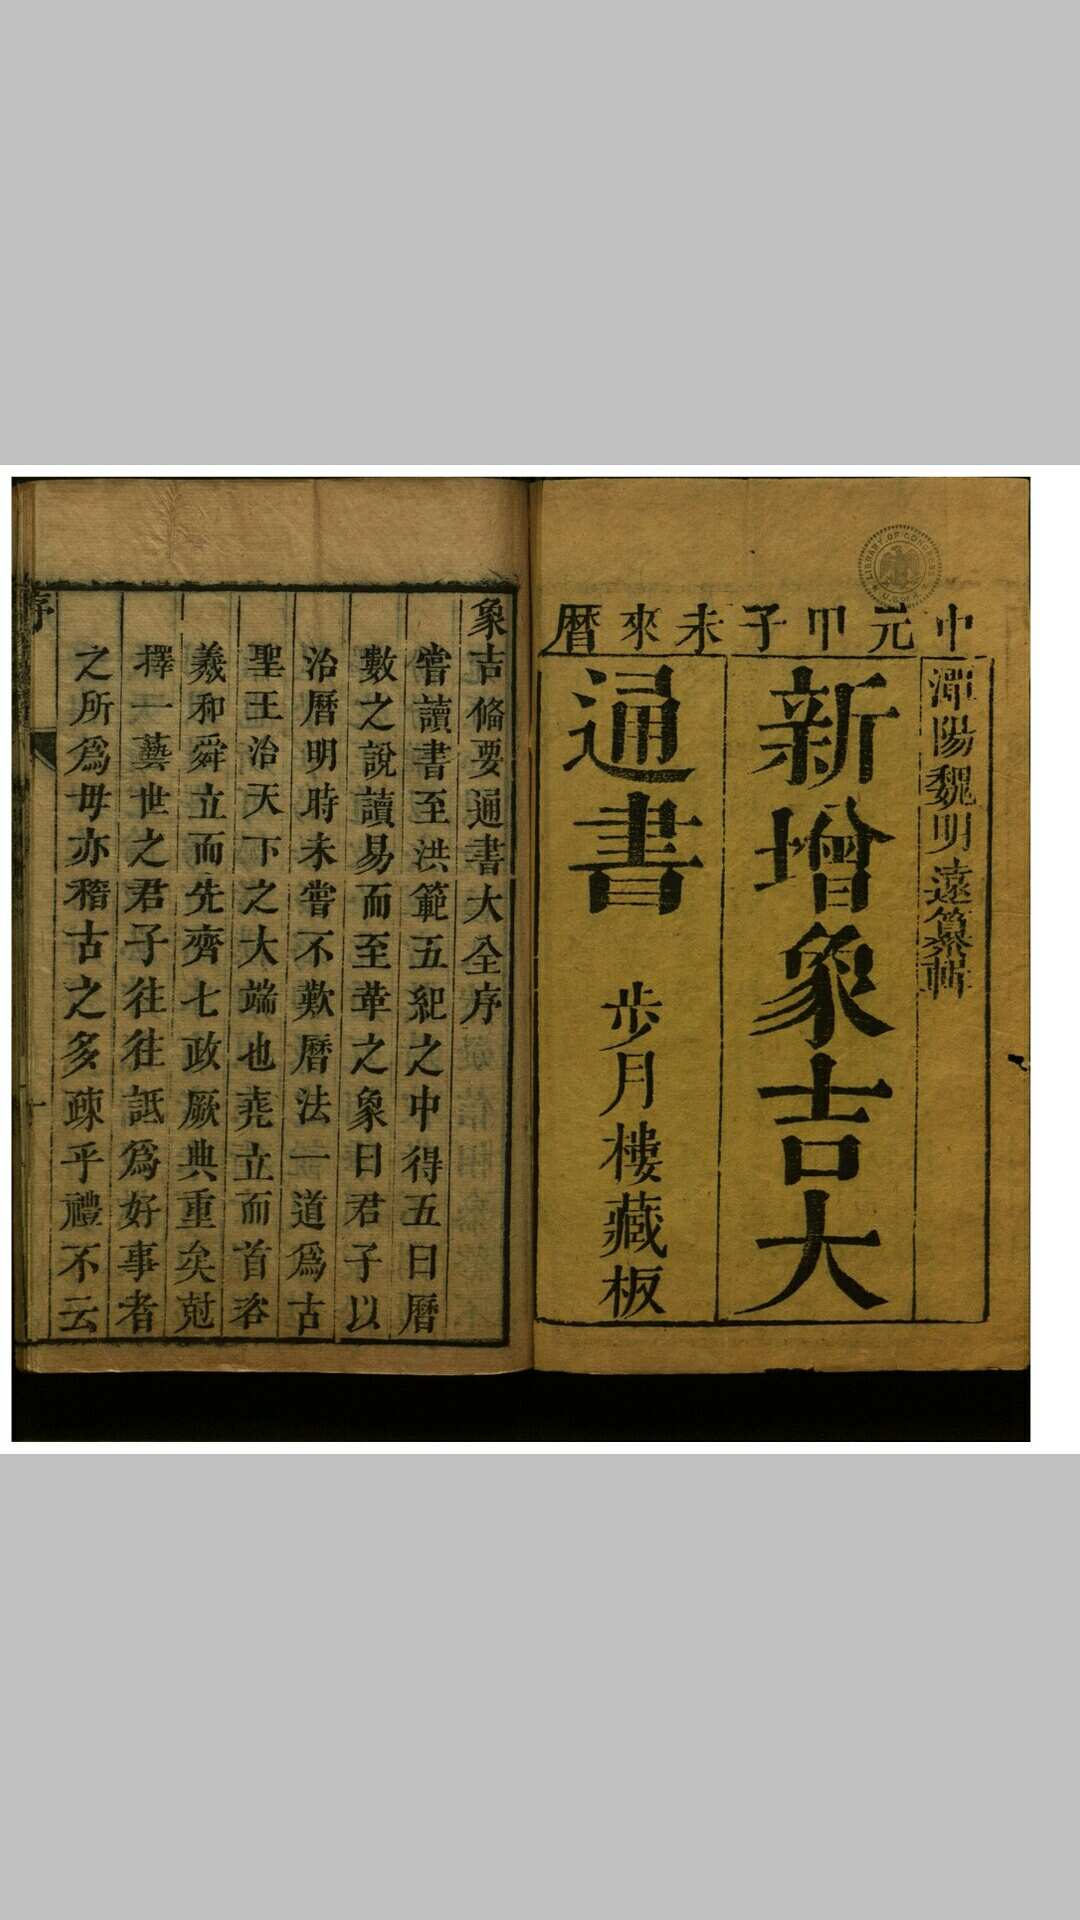 中元甲子未來曆
潭陽魏明遠纂輯
新增象吉大
通書
步月樓藏板
LIBRARY OF CONGRESS
象吉備要通書大全序
嘗讀書至洪範五紀之中得五曰曆
數之說讀易而至革之象曰君子以
治曆明時未嘗不歎曆法一道爲古
聖王治天下之大端也堯立而首咨
羲和舜立而先齊七政厥典重矣尅
擇一藝世之君子往往詆爲好事者
之所爲毋亦稽古之多疎乎禮不云
序
一